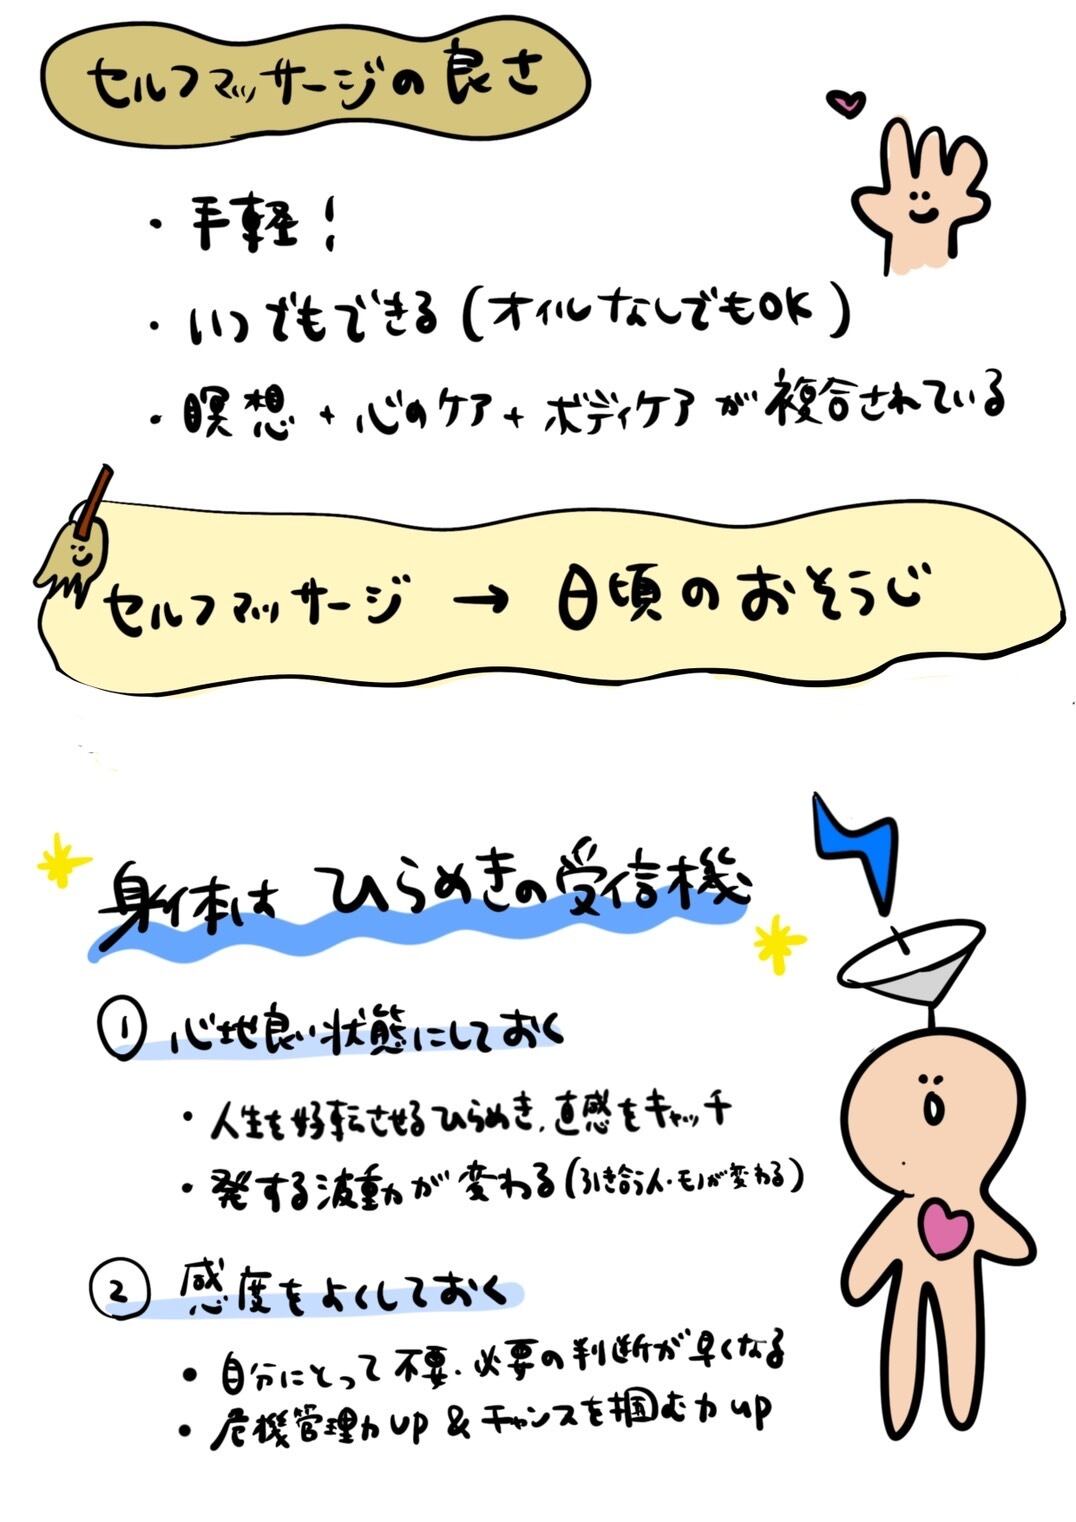 セルフマッサージの良さ
・手軽！
・いつでもできる（オイルなしでもOK）
・瞑想＋心のケア＋ボディケアが複合されている
セルフマッサージ → 日頃のおそうじ
身体は ひらめきの受信機
① 心地良い状態にしておく
・人生を好転させるひらめき、直感をキャッチ
・発する波動が変わる（引き合う人・モノが変わる）
② 感度をよくしておく
・自分にとって不要・必要の判断が早くなる
・危機管理力up & チャンスを掴む力up